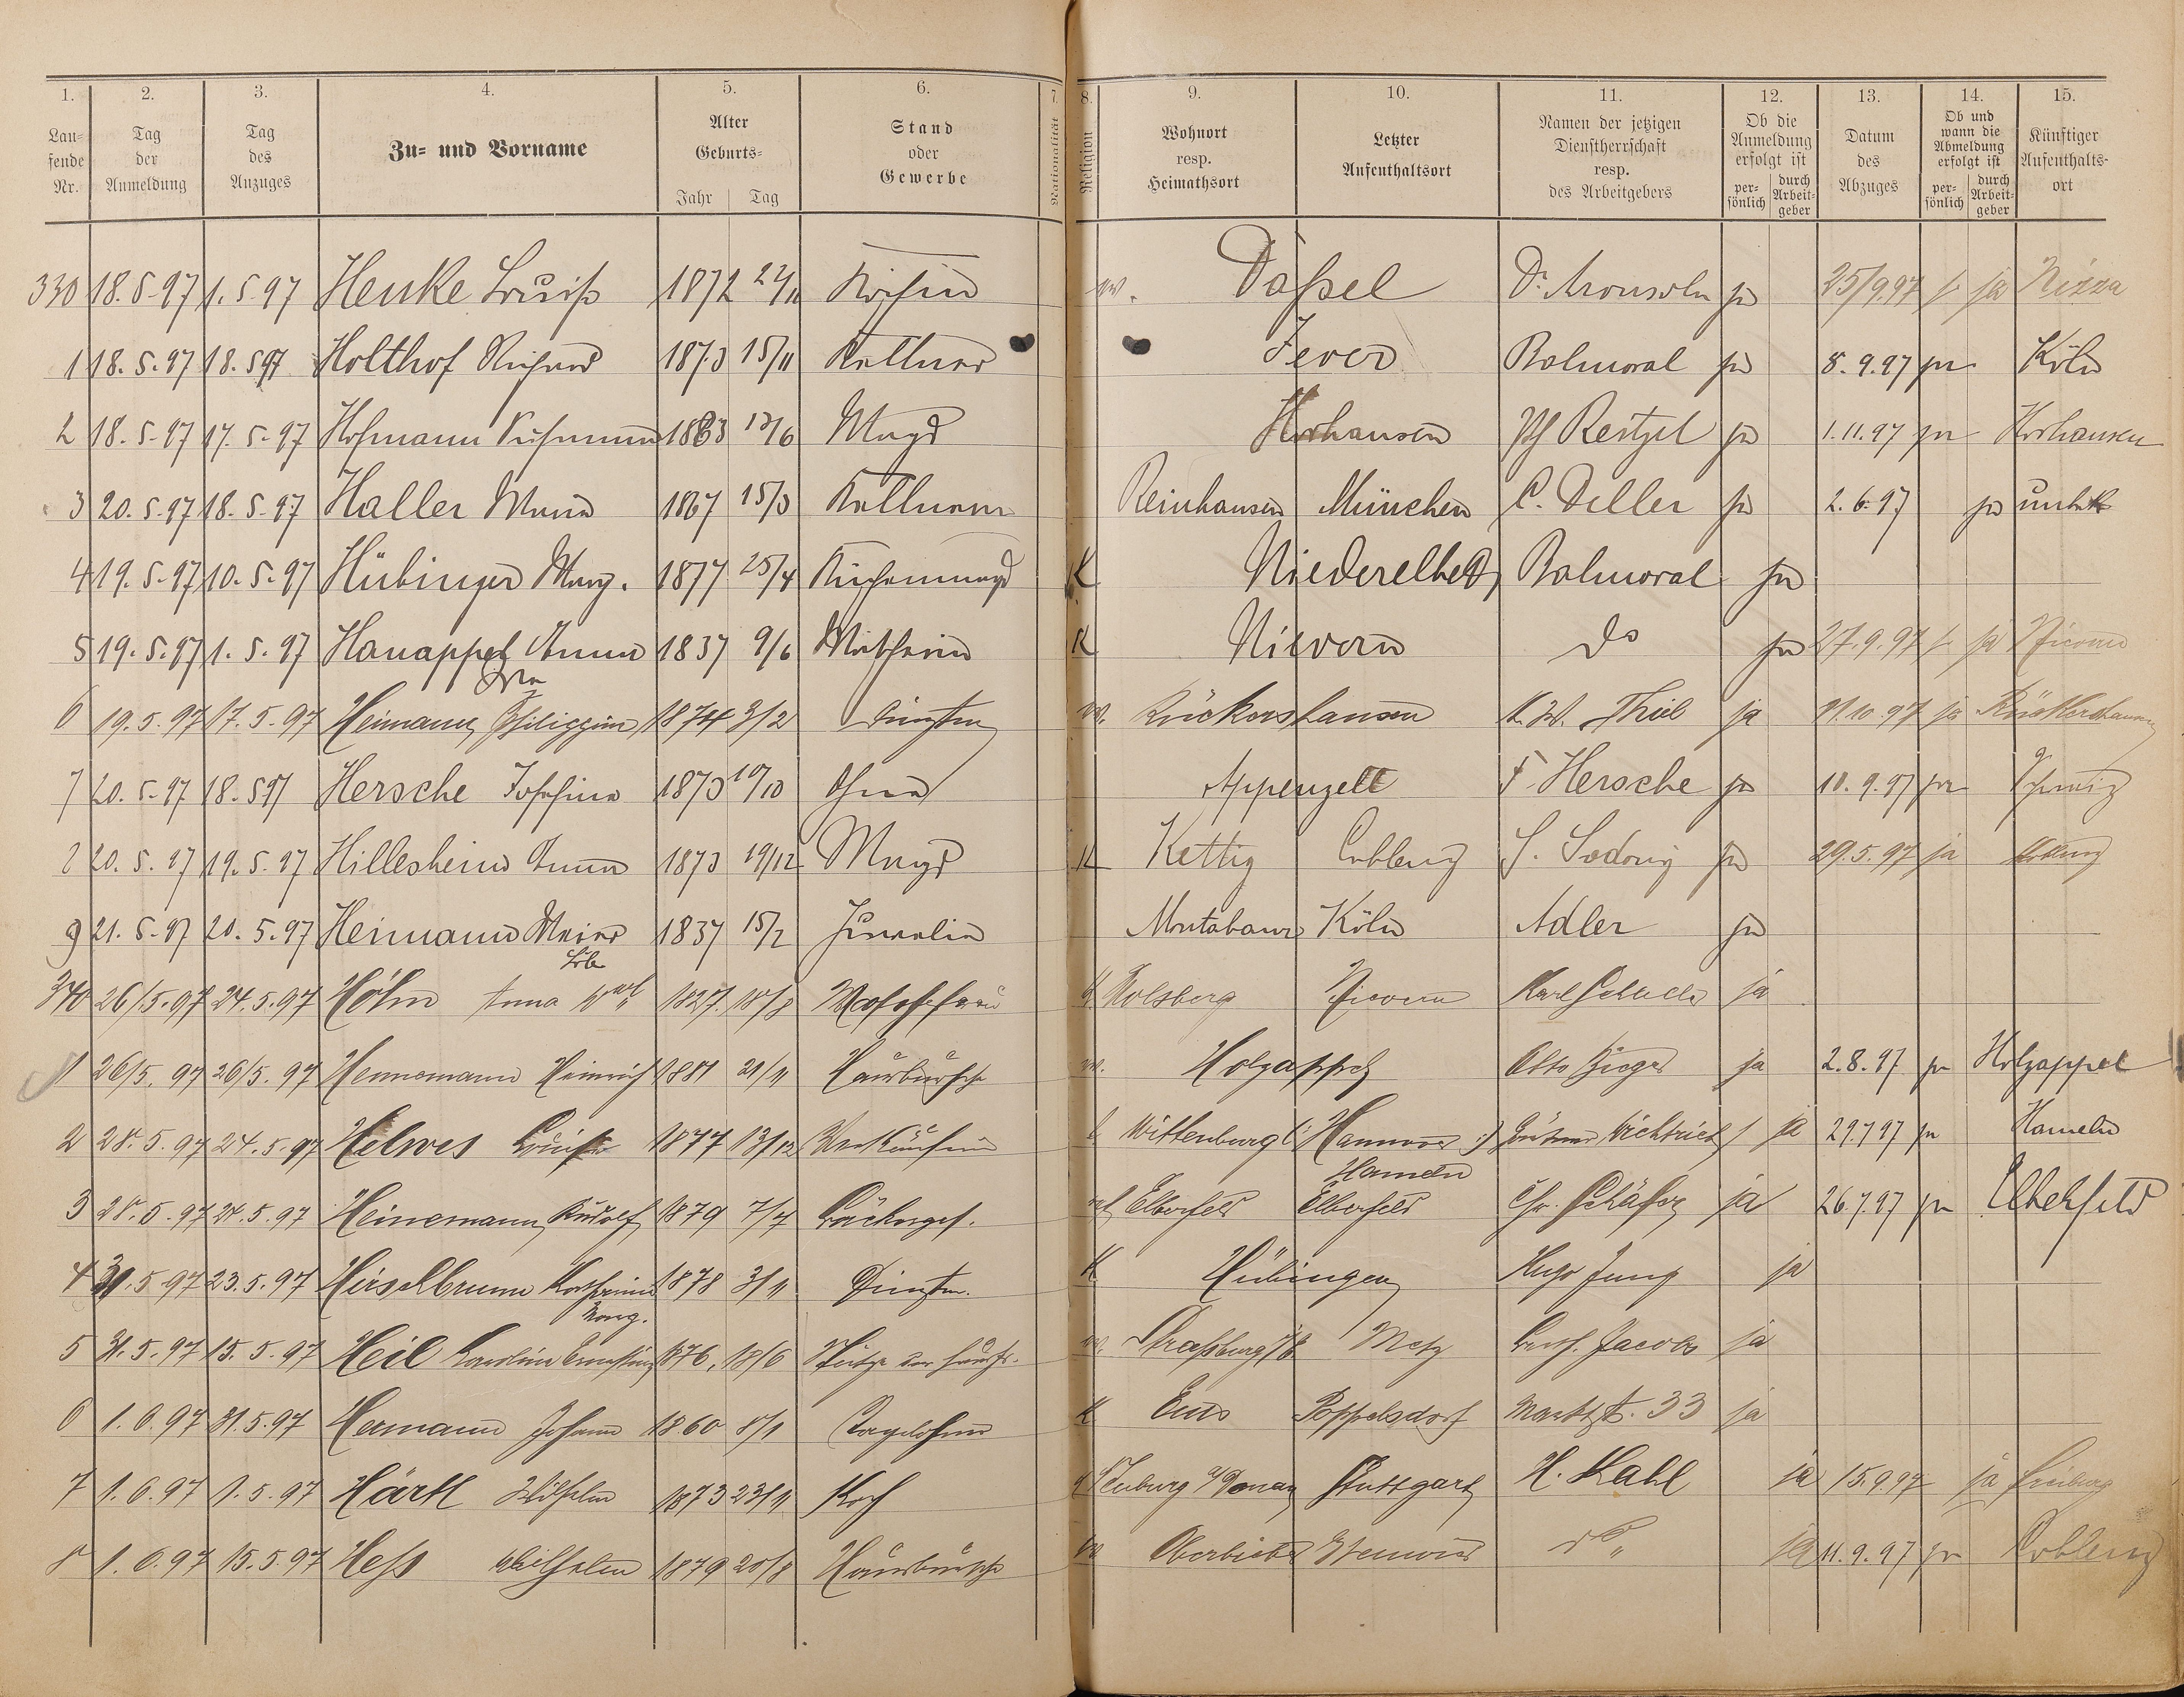 1. 2. 3. 4. 5. 6. 7. 8. 9. 10. 11. 12. 13. 14. 15.
Lau-fende Nr. Tag der Anmeldung Tag des Anzuges Zu- und Vorname Alter Geburts- Jahr Tag Stand oder Gewerbe Nationalität Religion Wohnort resp. Heimathsort Letzter Aufenthaltsort Namen der jetzigen Dienstherrschaft resp. des Arbeitgebers Ob die Anmeldung erfolgt ist per-sönlich durch Arbeit-geber Datum des Abzuges Ob und wann die Abmeldung erfolgt ist per-sönlich durch Arbeit-geber Künftiger Aufenthalts-ort
330 18.5.97 1.5.97 Henke Louise 1872 Köchin Dassel Dr. Aronsohn ja 25/9.97 ja Nizza
1 18.5.97 18.5.97 Holthof Richard 1873 15/11 Kellner Jever Balmoral ja 8.9.97 ja Köln
2 18.5.97 17.5.97 Hofmann 1883 13/6 Magd Horhausen ja 1.11.97 ja Horhausen
3 20.5.97 18.5.97 Haller Maria 1867 15/3 Kellnerin Reinhausen München C. Deller ja 2.6.97 ja unbek
4 19.5.97 10.5.97 Hübinger Marg. 1877 25/4 Küchenmagd K Niederelbert Balmoral ja
5 19.5.97 1.5.97 Hanappel Anna 1837 9/6 Wäscherin K Nievern do ja 27.9.97 ja Nievern
6 19.5.97 17.5.97 Heimann Philippine 1874 3/2 Dienstm Rückershausen K. W. Thiel ja 11.10.97 ja Rückershausen
7 20.5.97 18.5.97 Hersche Josefina 1873 10/10 Appenzell F. Hersche ja 10.9.97 ja Schweiz
8 20.5.97 19.5.97 Hillesheim Anna 1873 19/12 Magd K Kettig Coblenz ja 29.5.97 ja
9 21.5.97 20.5.97 Heimann Meier Löb 1837 15/2 Juwelier Montabaur Köln Adler ja
340 26/5.97 24.5.97 Höhn Anna Wwe 1827 18/8 Waschfrau K Holsberg Nievern Karl ja
1 26/5.97 26/5.97 Hennemann Heinrich 1881 21/11 Hausbursche Holzappel Otto ja 2.8.97 ja Holzappel
2 28.5.97 24.5.97 Helwes Louise 1877 13/12 Verkäuferin Wittenburg (: Hannover :) Hameln ja 29.7.97 ja Hameln
3 28.5.97 24.5.97 Heinemann Rudolf 1879 7/7 Bäckerges. Elberfeld Elberfeld Chr. Schäfer ja 26.7.97 ja Elberfeld
4 31.5.97 23.5.97 Hirschbrunn Katharina Marg. 1878 3/11 Dienstm. K Hübingen Hugo Jung ja
5 31.5.97 15.5.97 Heil Karoline Ernestine 1876 18/6 Stütze der Hausfr. Strassburg i/E Metz Jacobs ja
6 1.6.97 31.5.97 Hermann Johann 1860 8/1 Tagelöhner K Ems Poppelsdorf Marktst. 33 ja
7 1.6.97 1.5.97 Härtl Wilhelm 1873 23/11 Koch Neuburg a/Donau Stuttgart H. Kahl ja 15.9.97 ja Freiburg
8 1.6.97 15.5.97 Hess Wilhelm 1879 20/8 Hausbursche Oberbieber do ja 11.9.97 ja Coblenz